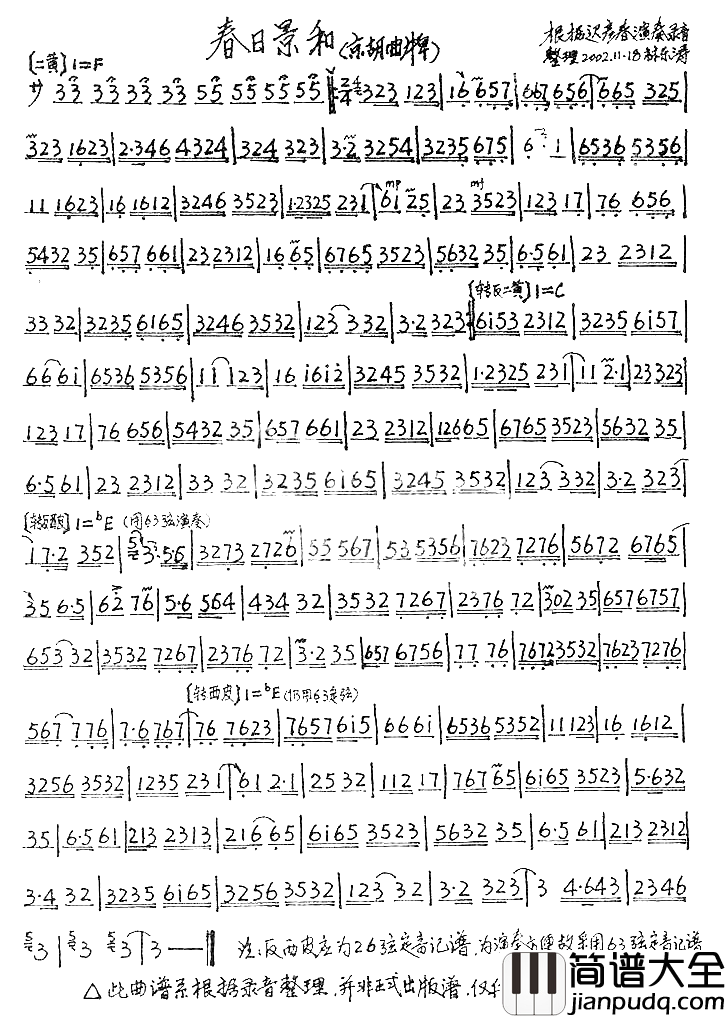 春日景和(京胡曲牌)
根据迟彦春演奏录音
整理2002.11.18 林东涛
[二黄] 1=F
サ 33 33 33 33 55 55 55 55 323 123 | 16 657 | 667 656 | 665 325 |
323 1623 | 2·346 4324 | 324 323 | 3·2 3254 | 3235 675 | 6 · 1 | 6536 5356 |
11 1623 | 16 1612 | 3246 3523 | 1·2325 231 | 61 25 | 23 3523 | 123 17 | 76 656 |
5432 35 | 657 661 | 23 2312 | 16 65 | 6765 3523 | 5632 35 | 6·561 | 23 2312 |
[转反二黄] 1=C
33 32 | 3235 6165 | 3246 3532 | 123 332 | 3·2 323 | 6153 2312 | 3235 6157 |
66 61 | 6536 5356 | 11 123 | 16 1612 | 3245 3532 | 1·2325 231 | 11 2·1 | 23323 |
123 17 | 76 656 | 5432 35 | 657 661 | 23 2312 | 12665 | 6765 3523 | 5632 35 |
6·561 | 23 2312 | 33 32 | 3235 6165 | 3245 3532 | 123 332 | 3·2 323 |
1=bE (用63弦演奏)
17·2 352 | 3·56 | 3273 2726 | 55 567 | 53 5356 | 7623 7276 | 5672 6765 |
35 6·5 | 62 76 | 5·6 564 | 434 32 | 3532 7267 | 2376 72 | 302 35 | 6576757 |
653 32 | 3532 7267 | 2376 72 | 3·2 35 | 657 6756 | 77 76 | 7672 3532 | 7623 7276 |
[转西皮] 1=bE (仍用63弦)
567 776 | 7·6767 | 76 7623 | 7657615 | 6661 | 6536 5352 | 11123 | 16 1612 |
3256 3532 | 1235 231 | 61 2·1 | 25 32 | 112 17 | 767 65 | 6165 3523 | 5·632
35 | 6·561 | 213 2313 | 216 65 | 6165 3523 | 5632 35 | 6·5 61 | 213 2312 |
3·4 32 | 3235 6165 | 3256 3532 | 123 32 | 3·2 323 | 3 4·643 | 2346
3 | 3 3 | 3 — ‖ 注:反西皮应为26弦定音记谱,为演奏方便故采用63弦定音记谱
△此曲谱系根据录音整理,并非正式出版谱,仅
简谱大全
jianpudq.com